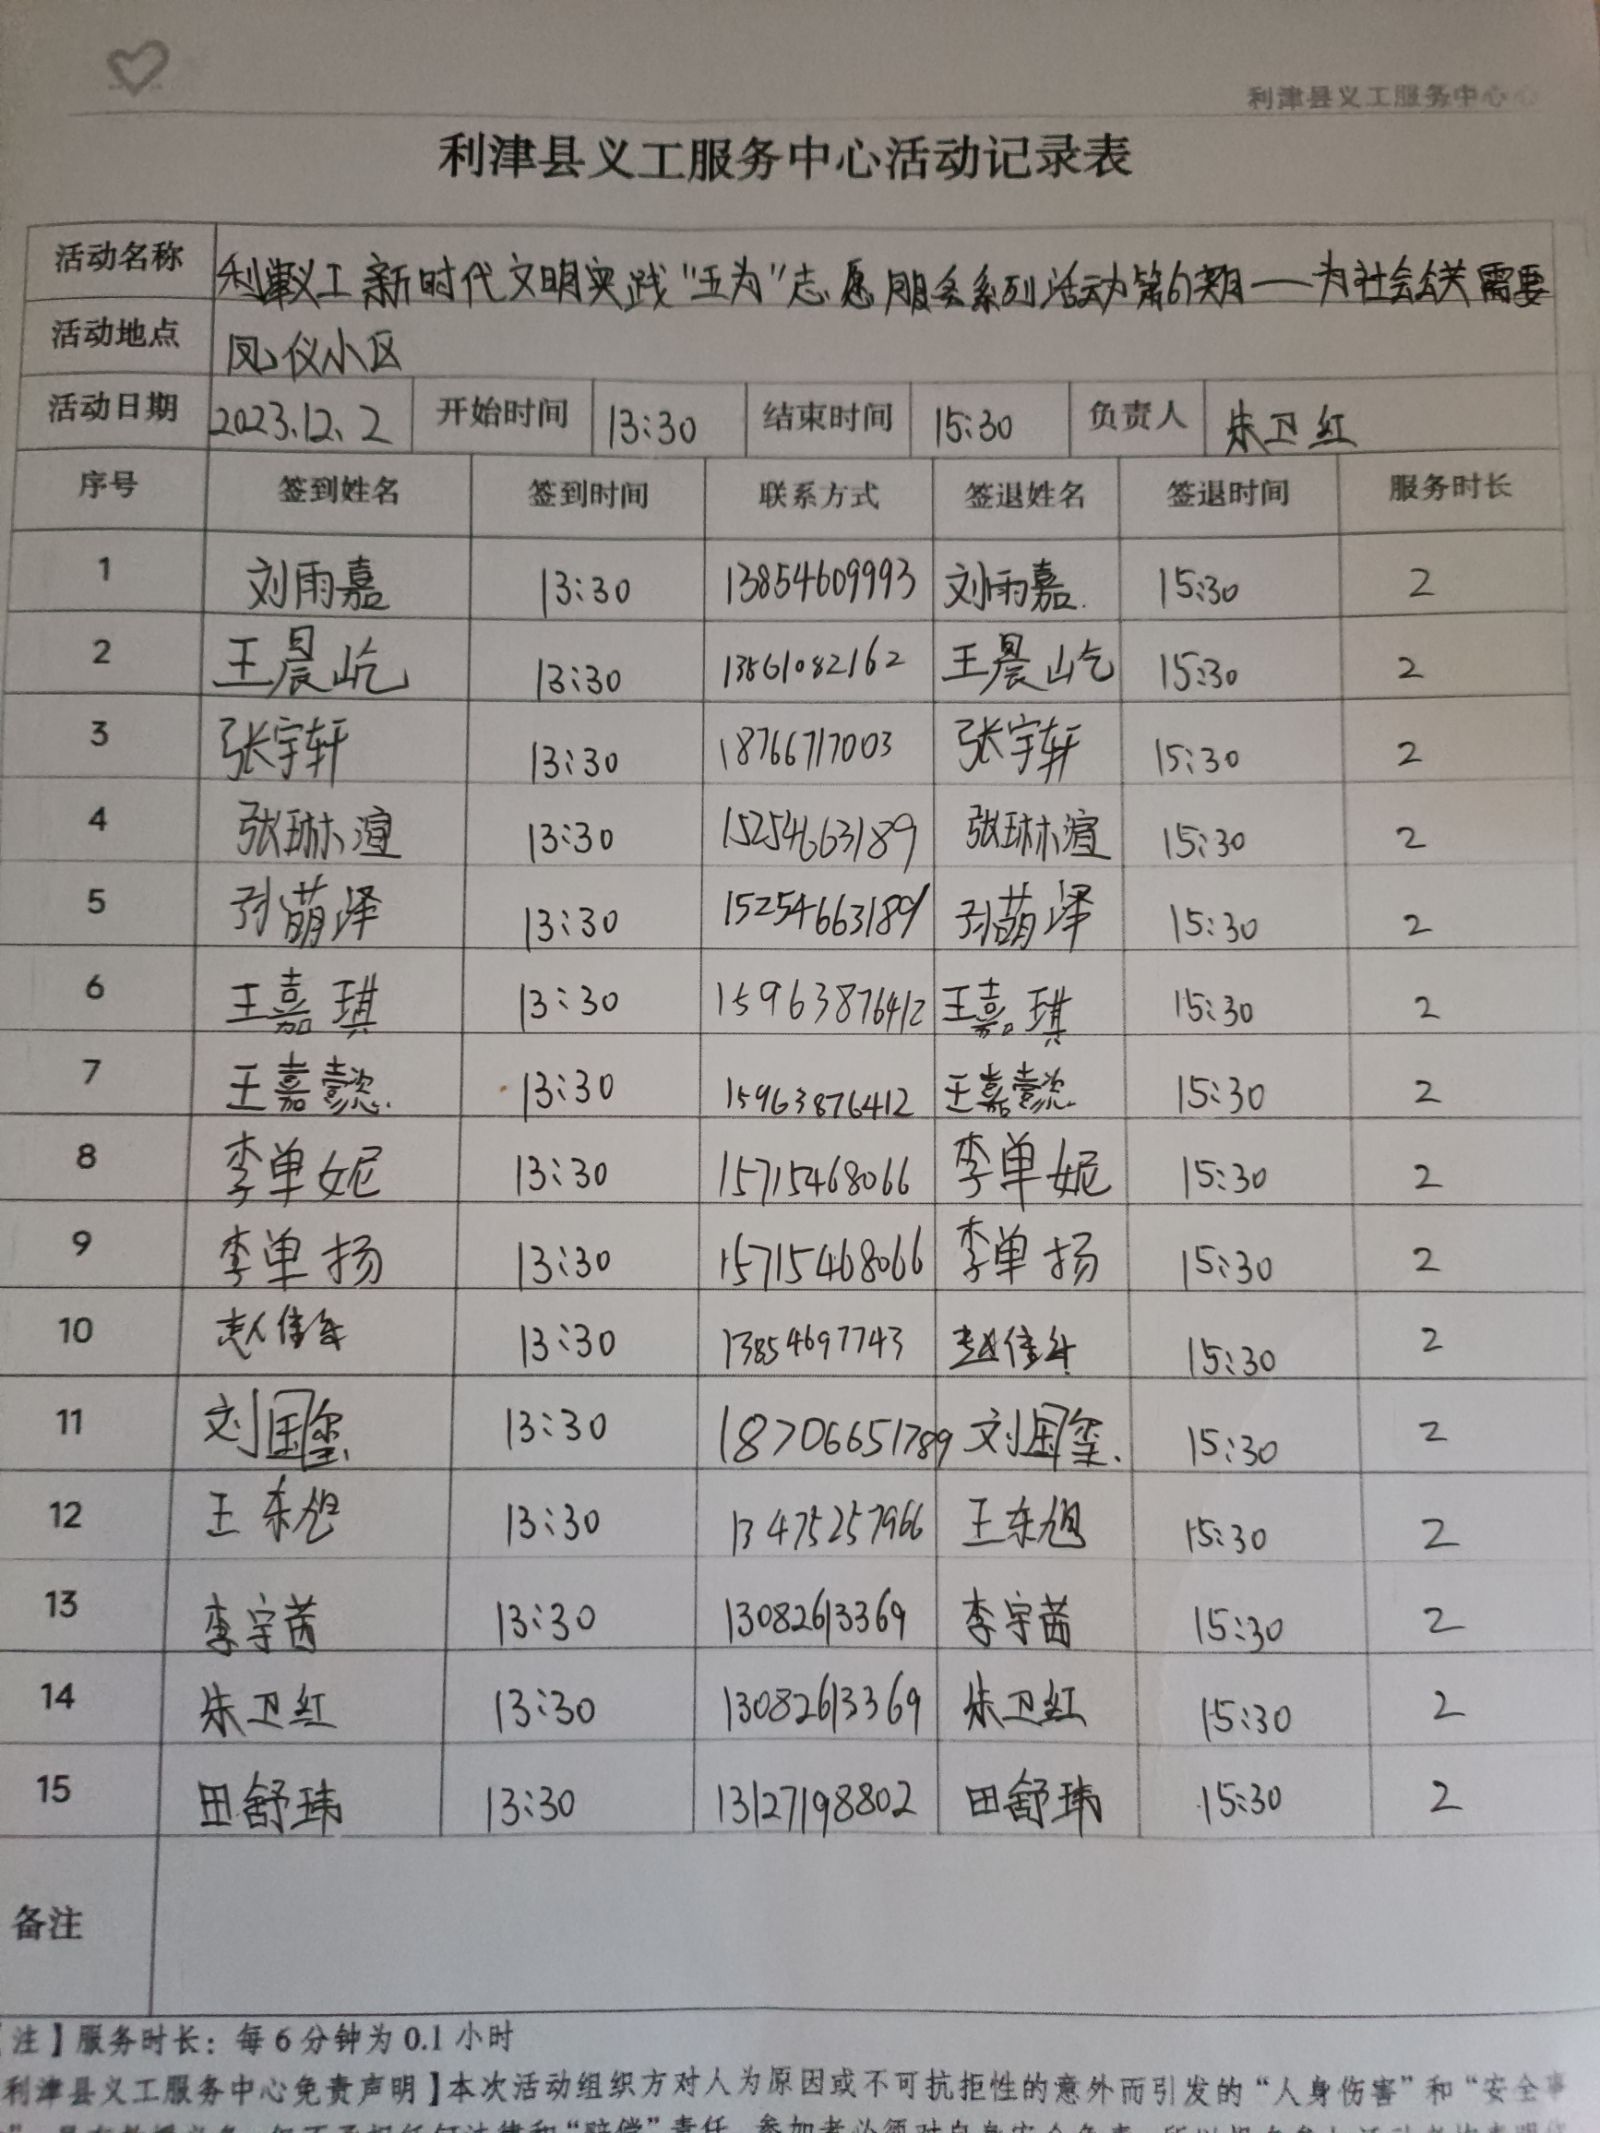 利津县义工服务中心
利津县义工服务中心活动记录表
活动名称 利津义工新时代文明实践“五为”志愿服务系列活动第61期——为社会公共需要
活动地点 凤仪小区
活动日期 2023.12.2 开始时间 13:30 结束时间 15:30 负责人 朱卫红
序号 签到姓名 签到时间 联系方式 签退姓名 签退时间 服务时长
1 刘雨嘉 13:30 13854609993 刘雨嘉 15:30 2
2 王晨屹 13:30 13561082162 王晨屹 15:30 2
3 张宇轩 13:30 18766717003 张宇轩 15:30 2
4 张琳渲 13:30 15254663189 张琳渲 15:30 2
5 孙萌泽 13:30 15254663189 孙萌泽 15:30 2
6 王嘉琪 13:30 15963876412 王嘉琪 15:30 2
7 王嘉懿 13:30 15963876412 王嘉懿 15:30 2
8 李单妮 13:30 15715468066 李单妮 15:30 2
9 李单扬 13:30 15715468066 李单扬 15:30 2
10 赵佳 13:30 13854697743 赵佳 15:30 2
11 刘国玺 13:30 18706651789 刘国玺 15:30 2
12 王东旭 13:30 13475257966 王东旭 15:30 2
13 李宇茜 13:30 13082613369 李宇茜 15:30 2
14 朱卫红 13:30 13082613369 朱卫红 15:30 2
15 田舒玮 13:30 13127198802 田舒玮 15:30 2
备注
注】服务时长：每6分钟为0.1小时
利津县义工服务中心免责声明】本次活动组织方对人为原因或不可抗拒性的意外而引发的“人身伤害”和“安全事